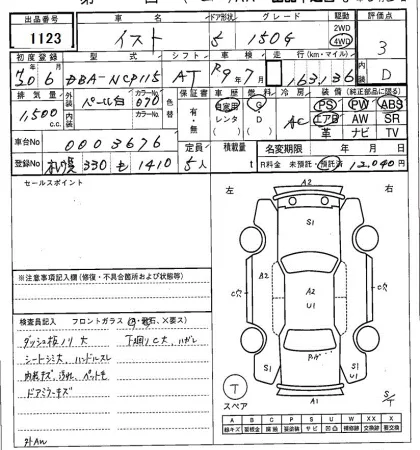 出品番号 車名 ドア形状 グレード 駆動 評価点
1123 イスト 5 150G 2WD 4WD 3
初度登録 型式 シフト 車検 走行(km・マイル) 内装
30年6月 DBA-NCP115 AT R7年7月 163,136 D
排気量 外装 カラーNo 色替 保証書 車歴 燃料 冷房 装備(純正部品に限る)
1,500 c.c. パール白 070 有・無 自家用 レンタ G D AC PS PW ABS
内装 カラーNo エアB AW SR
革 ナビ TV
車台No 0003676 定員 積載量 名変期限 年 月 日
登録No 札幌 330 も 1410 5人 t R料金 未預託・預託済 12,040円
セールスポイント
左 右
A2
S1
A2
A2
U1
C穴 C穴
S1
S1
U1
A1
※注意事項記入欄(修復・不具合箇所および状態等)
検査員記入 フロントガラス
ダッシュ板ノリ大 下廻りC大
シートシミ大、ハンドルスレ
内装キズ、汚れ、ペット毛
ドアミラーキズ
外AW
T
スペア
S/T
A B C P S U W X XX
線キズ 塗装 サビ 凹凸 補修跡 交換跡 要交換